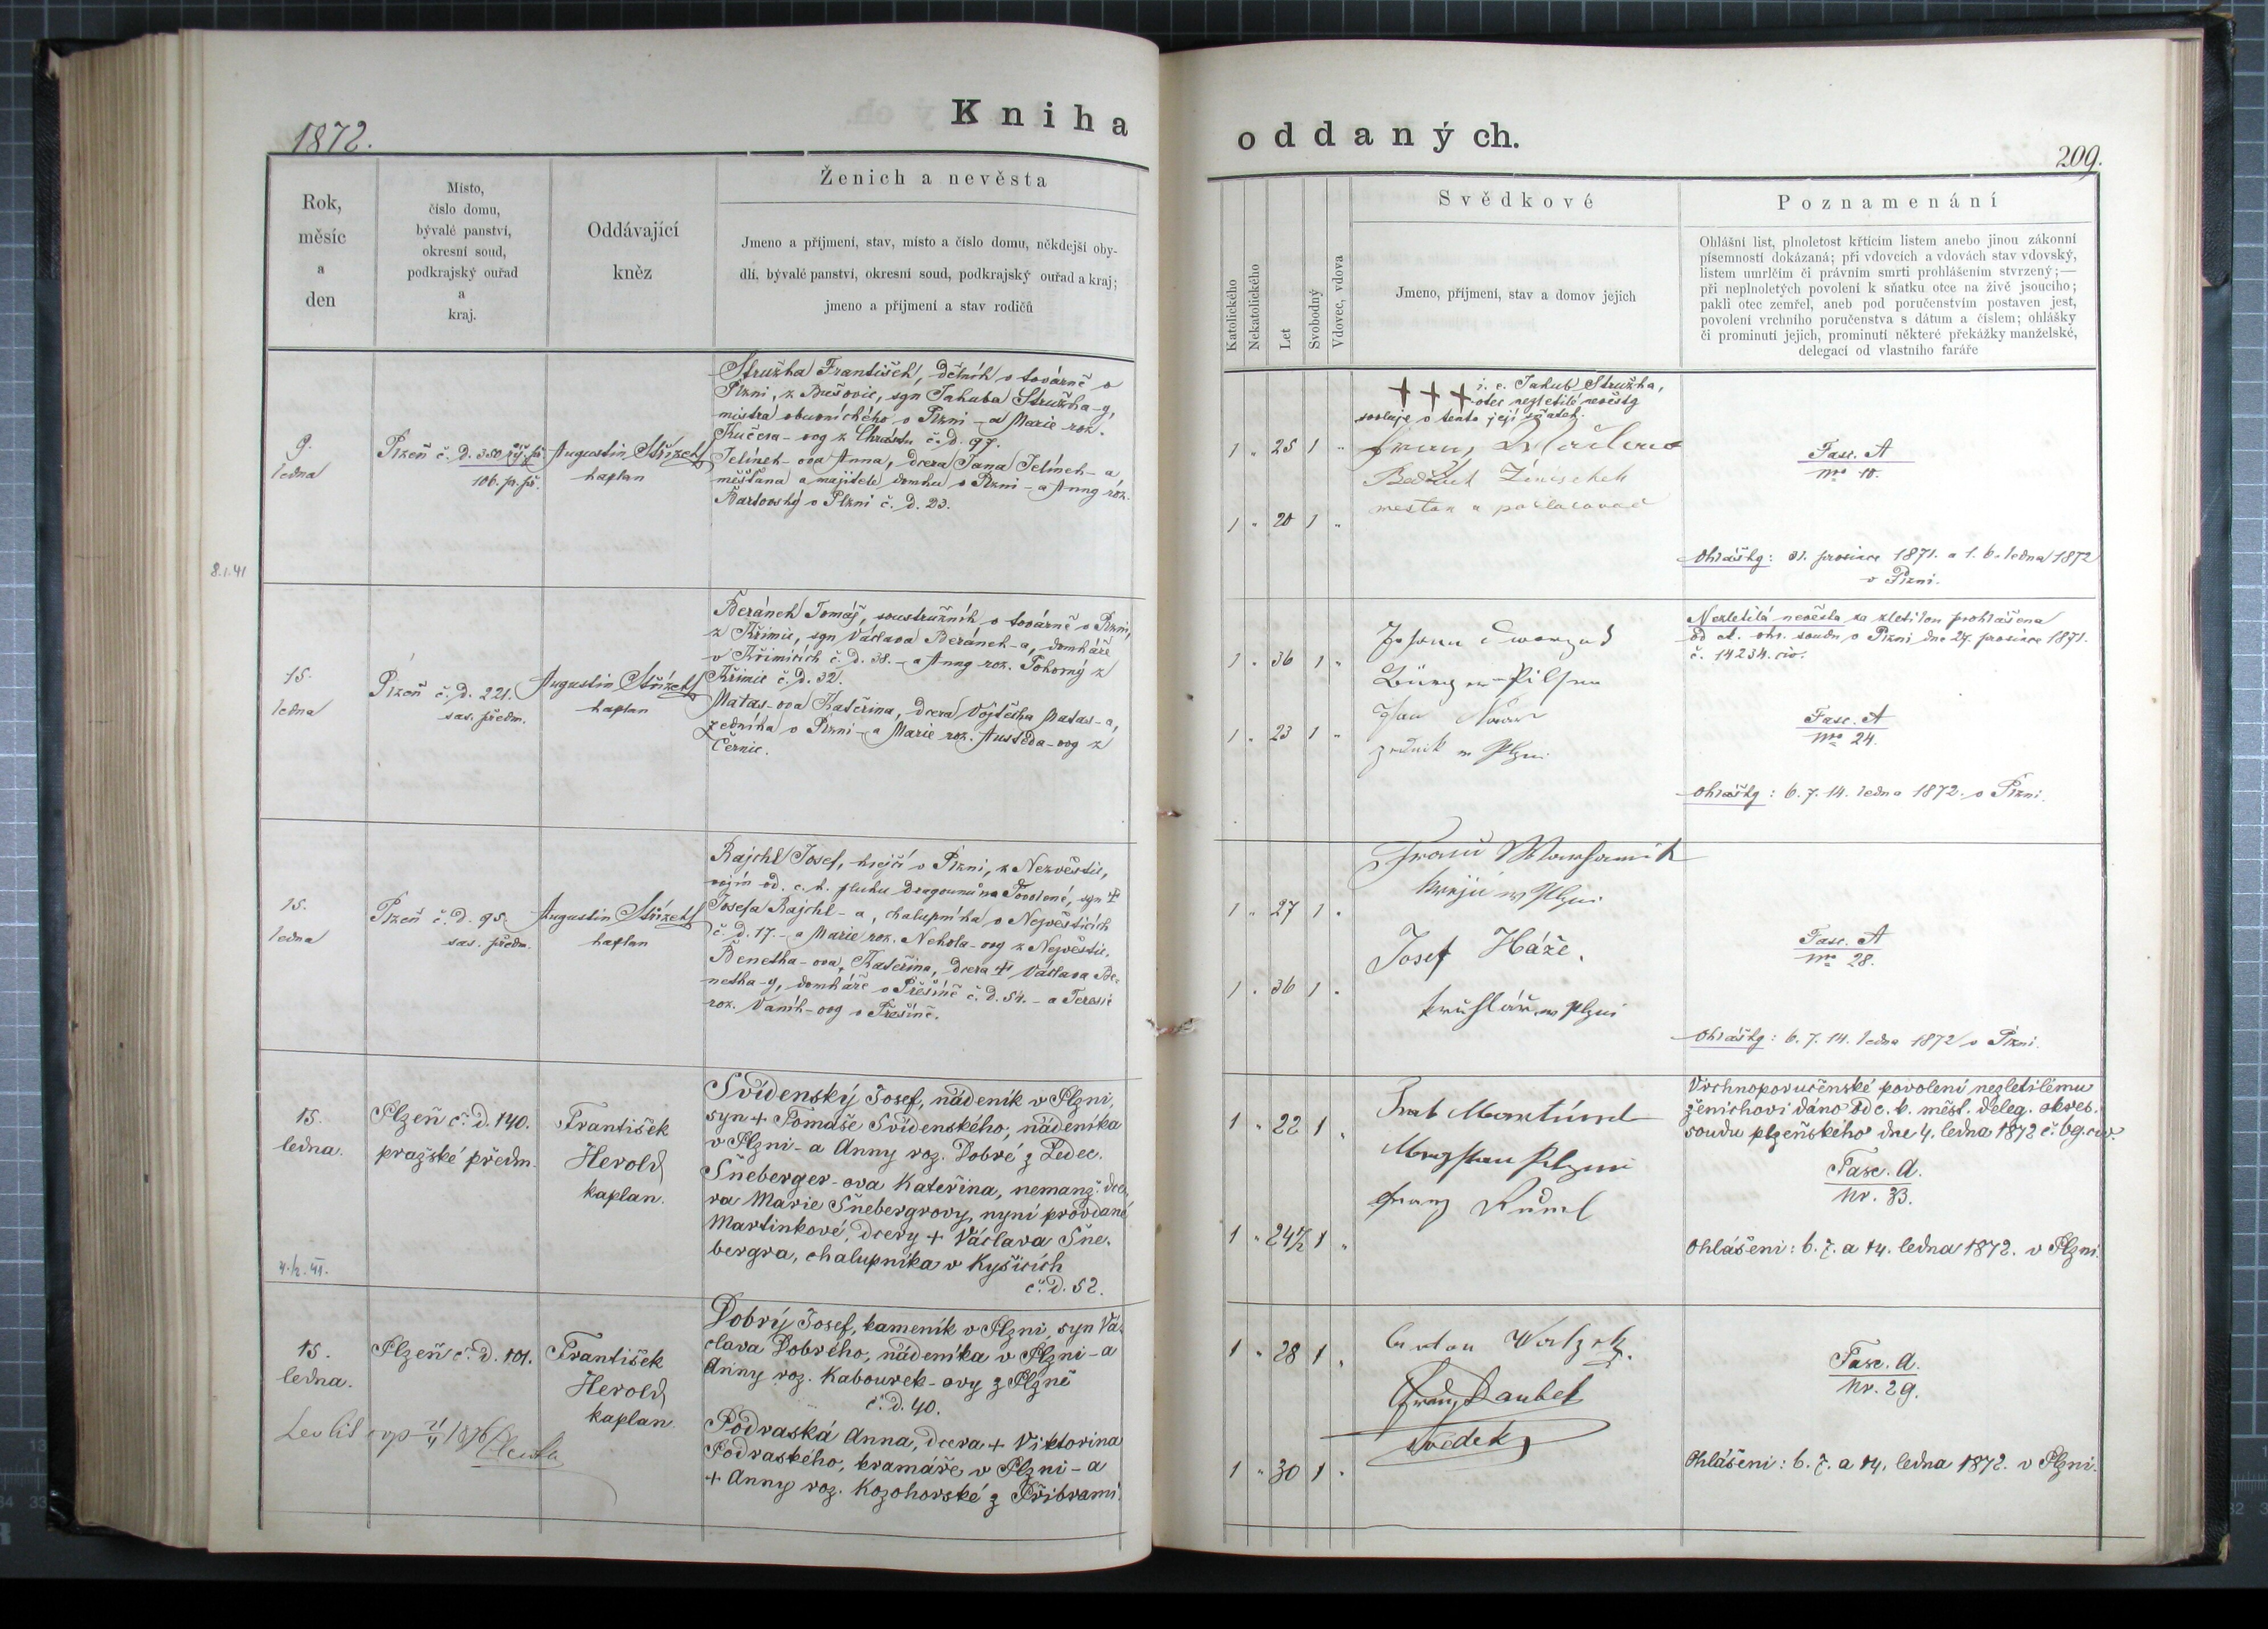 Kniha
1872.
Rok,
měsíc
a
den
Místo,
číslo domu,
bývalé panství,
okresní soud,
podkrajský ouřad
a
kraj.
Oddávající
kněz
Ženich a nevěsta
Jmeno a příjmení, stav, místo a číslo domu, někdejší oby-
dlí, bývalé panství, okresní soud, podkrajský ouřad a kraj;
jmeno a příjmení a stav rodičů
9.
ledna
Plzeň č. d. 350
106. pr. př.
Augustin Střízek
kaplan
Stružka František, dělník v továrně v
Plzni, z Bušovic, syn Jakuba Stružka-y,
mistra obuvnického v Plzni - a Marie roz.
Kučera-ovy z Chrástu č. d. 97.
Jelínek-ova Anna, dcera Jana Jelínek-a
měšťana a majitele domku v Plzni - a Anny roz.
Bartovský v Plzni č. d. 23.
8.1.41
15.
ledna
Plzeň č. d. 221.
sas. předm.
Augustin Střízek
kaplan
Beránek Tomáš, soustružník v továrně v Plzni,
z Křimic, syn Václava Beránek-a, domkáře
v Křimicích č. d. 38. - a Anny roz. Pokorný z
Křimic č. d. 32.
Matas-ova Kateřina, dcera Vojtěcha Matas-a,
zedníka v Plzni - a Marie roz. Austěda-ovy z
Černic.
15.
ledna
Plzeň č. d. 95.
sas. předm.
Augustin Střízek
kaplan
Rajchl Josef, krejčí v Plzni, z Nezvěstic,
vojín od. c. k. pluku dragounů na dovolené, syn +
Josefa Rajchl-a, chalupníka v Nezvěsticích
č. d. 17. - a Marie roz. Nekola-ovy z Nezvěstic.
Benetka-ova, Kateřina, dcera + Václava Be-
netka-y, domkáře v Přešíně č. d. 54. - a Teresie
roz. Vaník-ovy v Přešíně.
15.
ledna.
Plzeň č. d. 140.
pražské předm.
František
Herold
kaplan.
Svídenský Josef, nádeník v Plzni,
syn + Tomáše Svídenského, nádeníka
v Plzni - a Anny roz. Dobré z Ledec.
Šneberger-ova Kateřina, nemanž. dce-
ra Marie Šnebergrovy, nyní provdané
Martinkové, dcery + Václava Šne-
bergra, chalupníka v Kyšicích
č. d. 52.
15.
ledna.
Plzeň č. d. 101.
František
Herold
kaplan.
Dobrý Josef, kameník v Plzni, syn Vá-
clava Dobrého, nádeníka v Plzni - a
Anny roz. Kabourek-ovy z Plzně
č. d. 40.
Podraská Anna, dcera + Viktorina
Podraského, kramáře v Plzni - a
+ Anny roz. Kozohorské z Příbrami.
oddaných.
209.
Katolického
Nekatolického
Let
Svobodný
Vdovec, vdova
Svědkové
Jmeno, příjmení, stav a domov jejich
Poznamenání
Ohlášní list, plnoletost křticím listem anebo jinou zákonní
písemností dokázaná; při vdovcích a vdovách stav vdovský,
listem umrlčím či právním smrti prohlášením stvrzený;—
při neplnoletých povolení k sňatku otce na živě jsoucího;
pakli otec zemřel, aneb pod poručenstvím postaven jest,
povolení vrchního poručenstva s dátum a číslem; ohlášky
či prominutí jejich, prominutí některé překážky manželské,
delegací od vlastního faráře
+ + + i. e. Jakub Stružka,
otec nezletilé nevěsty
svoluje v tento její sňatek.
1 " 25 1 "
1 " 20 1 "
Fasc. A
Nro 10.
Ohlášky: 31. prosince 1871. a 1. 6. ledna 1872
v Plzni.
1 " 36 1 "
1 " 23 1 "
zedník w Plzni
Nezletilá nevěsta za zletilou prohlášena
od ct. okr. soudu v Plzni dne 27. prosince 1871.
č. 14234. civ.
Fasc. A
Nro 24.
Ohlášky: 6. 7. 14. ledna 1872. v Plzni.
1 " 27 1 "
1 " 36 1 "
w Plzni
Josef Háže.
truhlář w Plzni
Fasc. A
Nro 28.
Ohlášky: 6. 7. 14. ledna 1872 v Plzni.
1 " 22 1 "
1 " 24½ 1 "
Vrchnoporučenské povolení nezletilému
ženichovi dáno od c. k. měst. deleg. okres.
soudu plzeňského dne 4. ledna 1872 č. 69. civ.
Fasc. A.
Nr. 33.
Ohlášeni: 6. 7. a 14. ledna 1872. v Plzni.
1 " 28 1 "
1 " 30 1 "
Franz Daubek
svědek
Fasc. A.
Nr. 29.
Ohlášeni: 6. 7. a 14. ledna 1872. v Plzni.